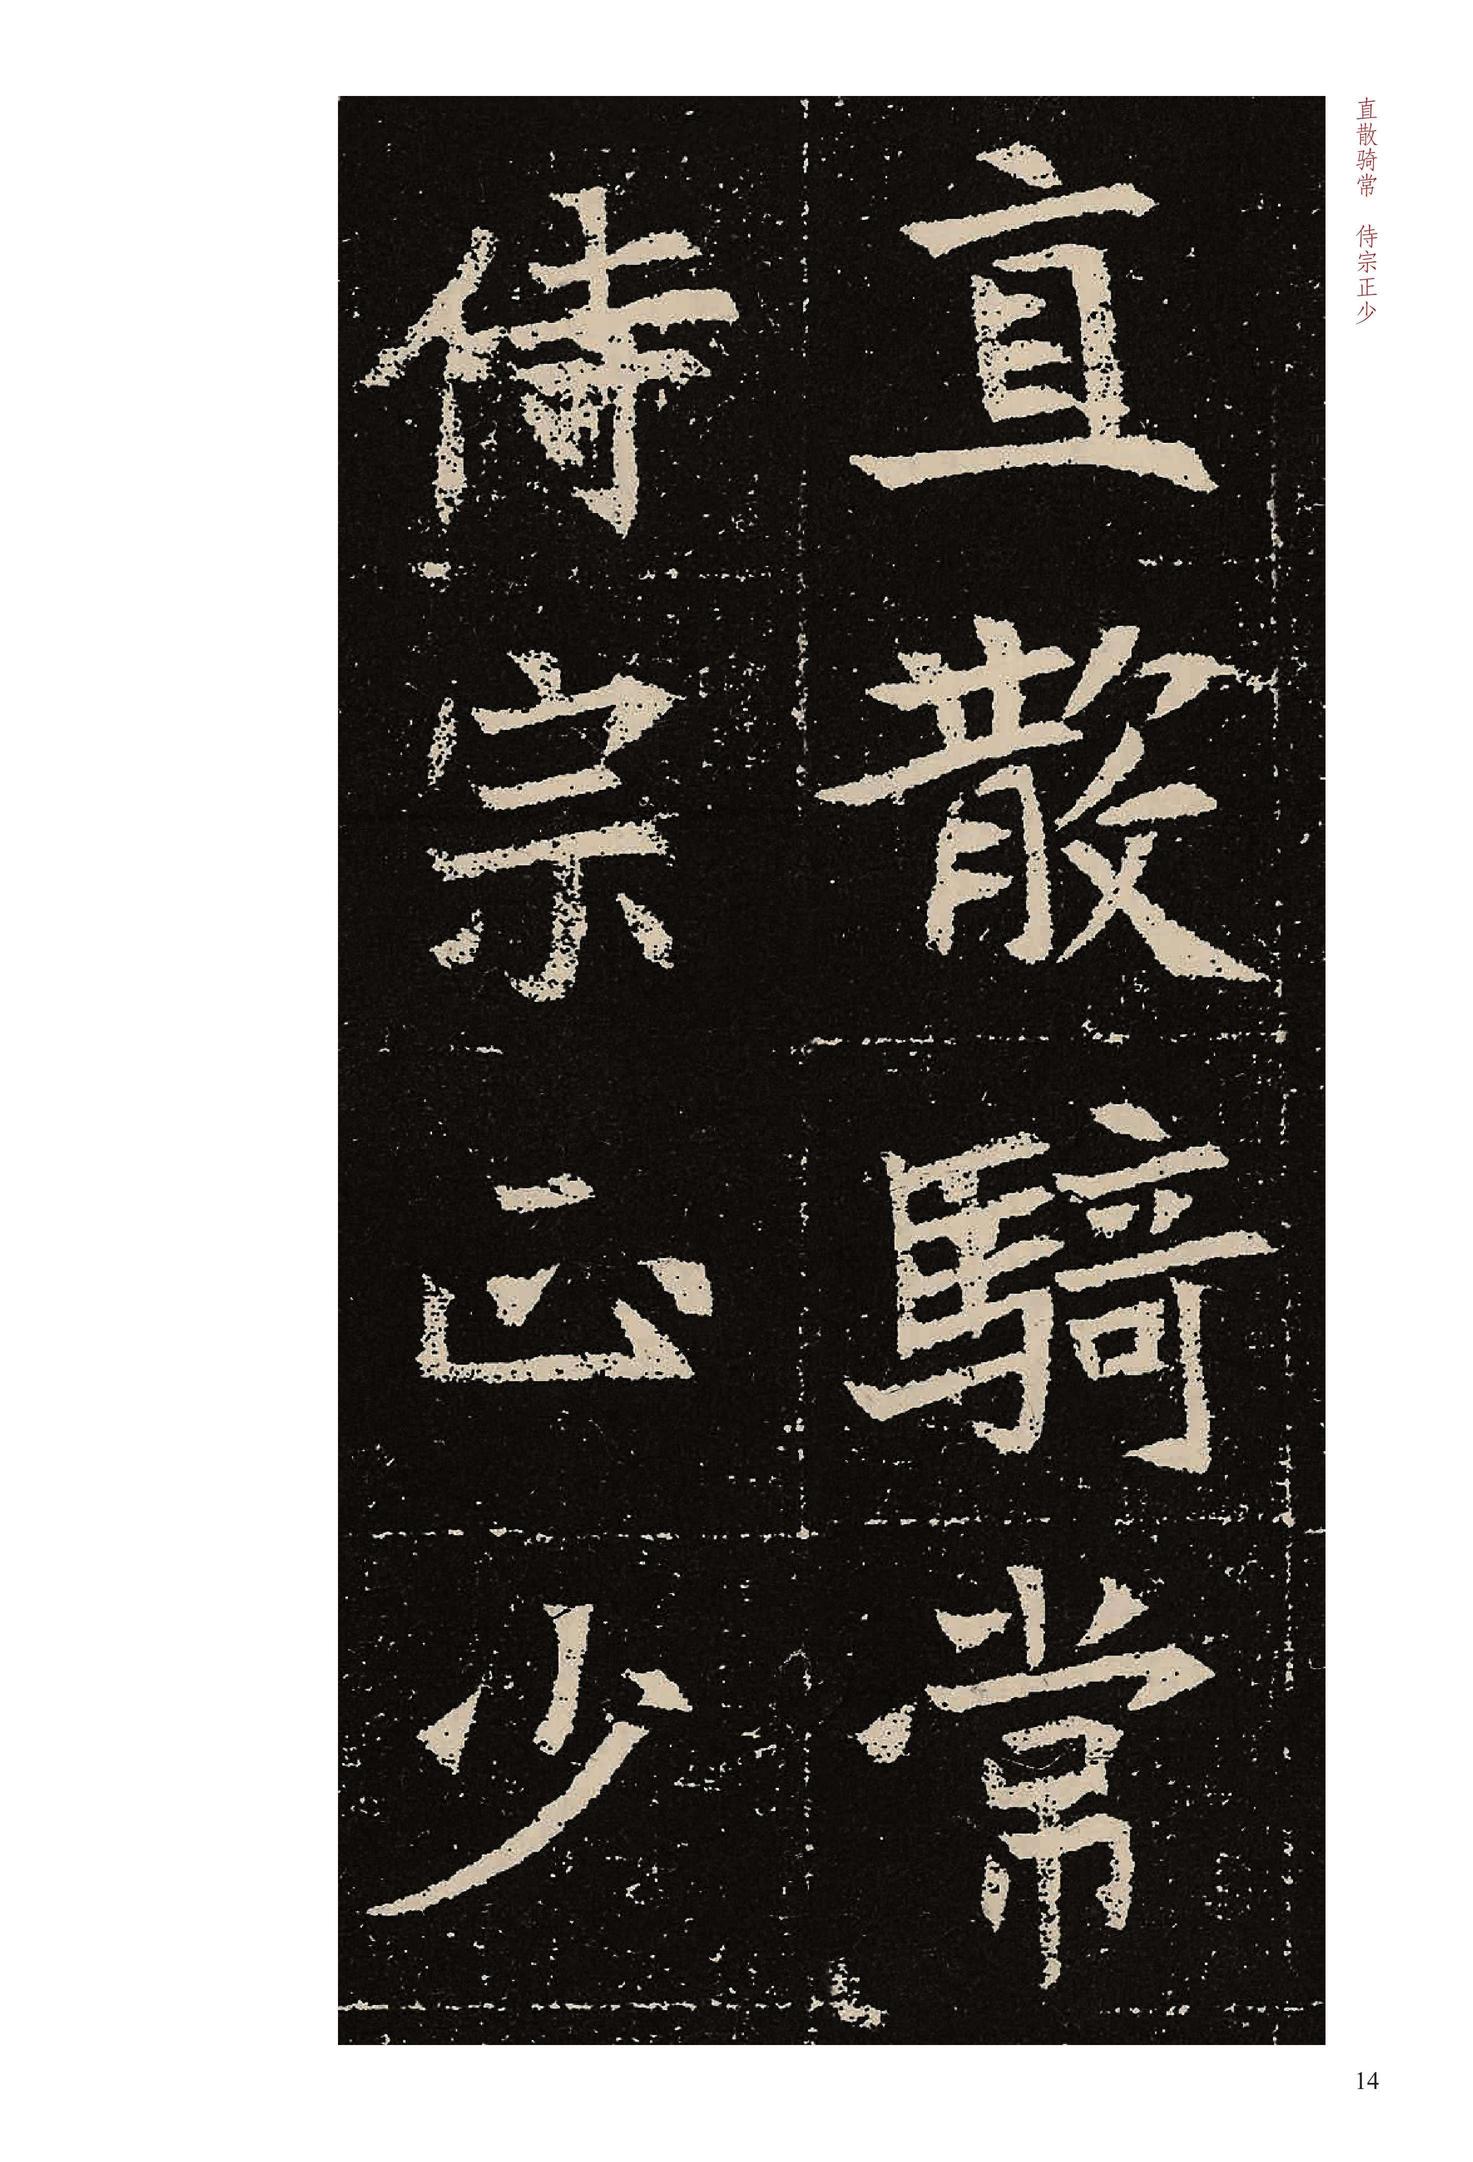 直散騎常
侍宗正少
直散骑常　侍宗正少
14